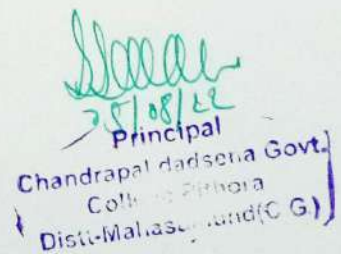 25/08/22
Principal
Chandrapal dadsena Govt.
College Pithora
Distt-Mahasamund(C.G.)